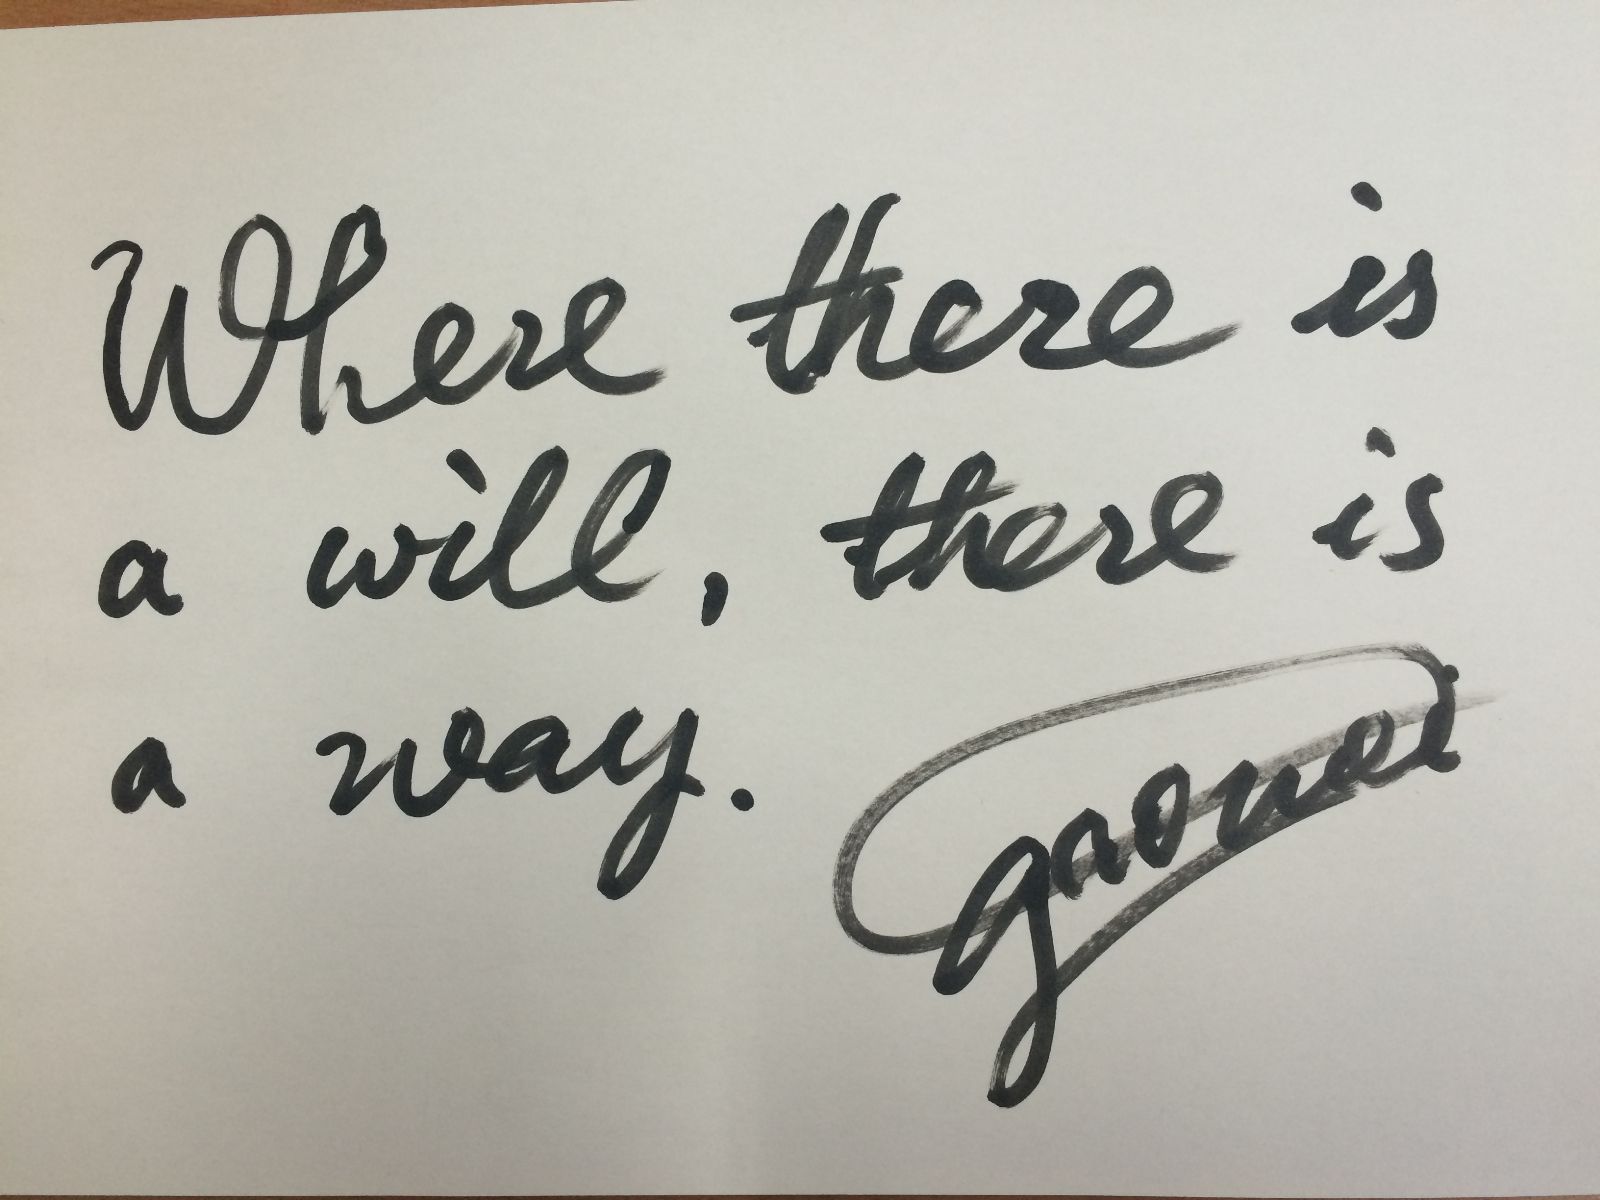 Where there is
a will, there is
a way.